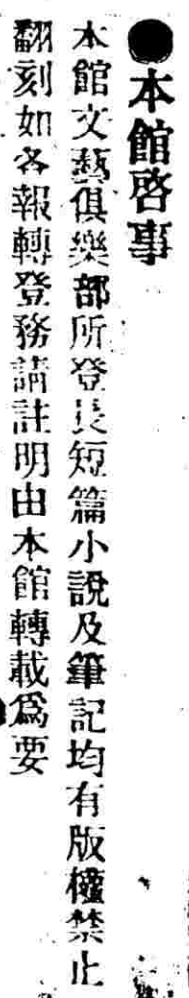 ●本館啓事
本館文藝俱樂部所登長短篇小說及筆記均有版權禁止
翻刻如各報轉登務請註明由本館轉載爲要